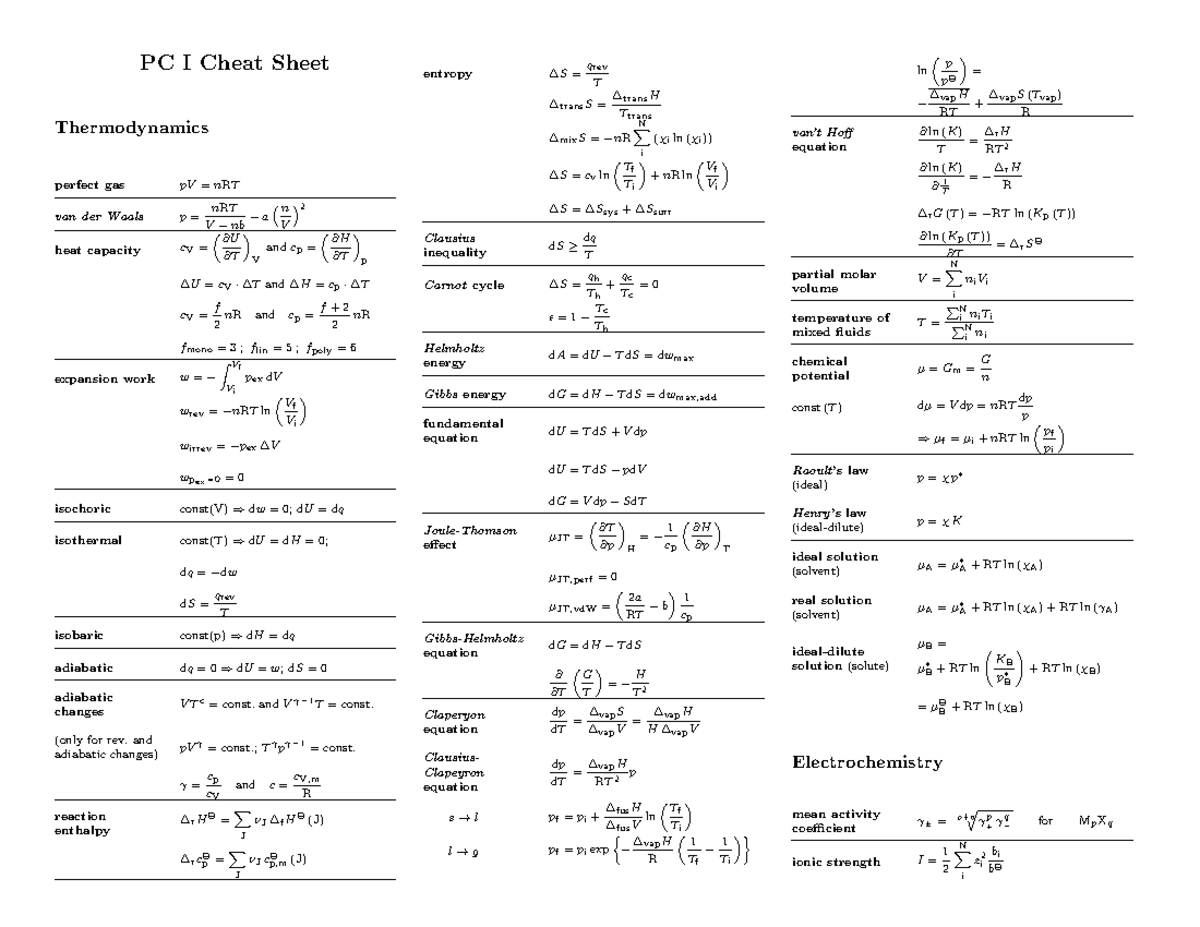 PC I Cheat Sheet
Thermodynamics
perfect gas pV = nRT
van der Waals p = nRT/(V − nb) − a (n/V)²
heat capacity c_V = (∂U/∂T)_V and c_p = (∂H/∂T)_p
ΔU = c_V · ΔT and ΔH = c_p · ΔT
c_V = f/2 nR and c_p = (f + 2)/2 nR
f_mono = 3 ; f_lin = 5 ; f_poly = 6
expansion work w = − ∫_{V_i}^{V_f} p_ex dV
w_rev = −nRT ln (V_f/V_i)
w_irrev = −p_ex ΔV
w_{p_ex=0} = 0
isochoric const(V) ⇒ dw = 0; dU = dq
isothermal const(T) ⇒ dU = dH = 0;
dq = −dw
dS = q_rev/T
isobaric const(p) ⇒ dH = dq
adiabatic dq = 0 ⇒ dU = w; dS = 0
adiabatic
changes VT^c = const. and V^{γ−1}T = const.
(only for rev. and
adiabatic changes) pV^γ = const.; T^γ p^{γ−1} = const.
γ = c_p/c_V and c = c_{V,m}/R
reaction
enthalpy Δ_r H^⊖ = ∑_J ν_J Δ_f H^⊖ (J)
Δ_r c_p^⊖ = ∑_J ν_J c_{p,m}^⊖ (J)
entropy ΔS = q_rev/T
Δ_trans S = Δ_trans H/T_trans
Δ_mix S = −nR ∑_i^N (χ_i ln (χ_i))
ΔS = c_v ln (T_f/T_i) + nR ln (V_f/V_i)
ΔS = ΔS_sys + ΔS_surr
Clausius
inequality dS ≥ dq/T
Carnot cycle ΔS = q_h/T_h + q_c/T_c = 0
ε = 1 − T_c/T_h
Helmholtz
energy dA = dU − TdS = dw_max
Gibbs energy dG = dH − TdS = dw_max,add
fundamental
equation dU = TdS + Vdp
dU = TdS − pdV
dG = Vdp − SdT
Joule-Thomson
effect μ_JT = (∂T/∂p)_H = −1/c_p (∂H/∂p)_T
μ_JT,perf = 0
μ_JT,vdW = (2a/RT − b) 1/c_p
Gibbs-Helmholtz
equation dG = dH − TdS
∂/∂T (G/T) = −H/T²
Claperyon
equation dp/dT = Δ_vap S/Δ_vap V = Δ_vap H/(H Δ_vap V)
Clausius-
Clapeyron
equation dp/dT = Δ_vap H/RT² p
s → l p_f = p_i + Δ_fus H/Δ_fus V ln (T_f/T_i)
l → g p_f = p_i exp {−Δ_vap H/R (1/T_f − 1/T_i)}
ln (p/p^⊖) =
−Δ_vap H/RT + Δ_vap S (T_vap)/R
van't Hoff
equation ∂ln (K)/T = Δ_r H/RT²
∂ln (K)/∂(1/T) = −Δ_r H/R
Δ_r G (T) = −RT ln (K_p (T))
∂ln (K_p (T))/∂T = Δ_r S^⊖
partial molar
volume V = ∑_i^N n_i V_i
temperature of
mixed fluids T = ∑_i^N n_i T_i/∑_i^N n_i
chemical
potential μ = G_m = G/n
const (T) dμ = Vdp = nRT dp/p
⇒ μ_f = μ_i + nRT ln (p_f/p_i)
Raoult's law
(ideal) p = χp*
Henry's law
(ideal-dilute) p = χK
ideal solution
(solvent) μ_A = μ_A* + RT ln (χ_A)
real solution
(solvent) μ_A = μ_A* + RT ln (χ_A) + RT ln (γ_A)
ideal-dilute
solution (solute) μ_B =
μ_B* + RT ln (K_B/p_B*) + RT ln (χ_B)
= μ_B^⊖ + RT ln (χ_B)
Electrochemistry
mean activity
coefficient γ_± = ^{p+q}√(γ_+^p γ_−^q) for M_pX_q
ionic strength I = 1/2 ∑_i^N z_i² b_i/b^⊖